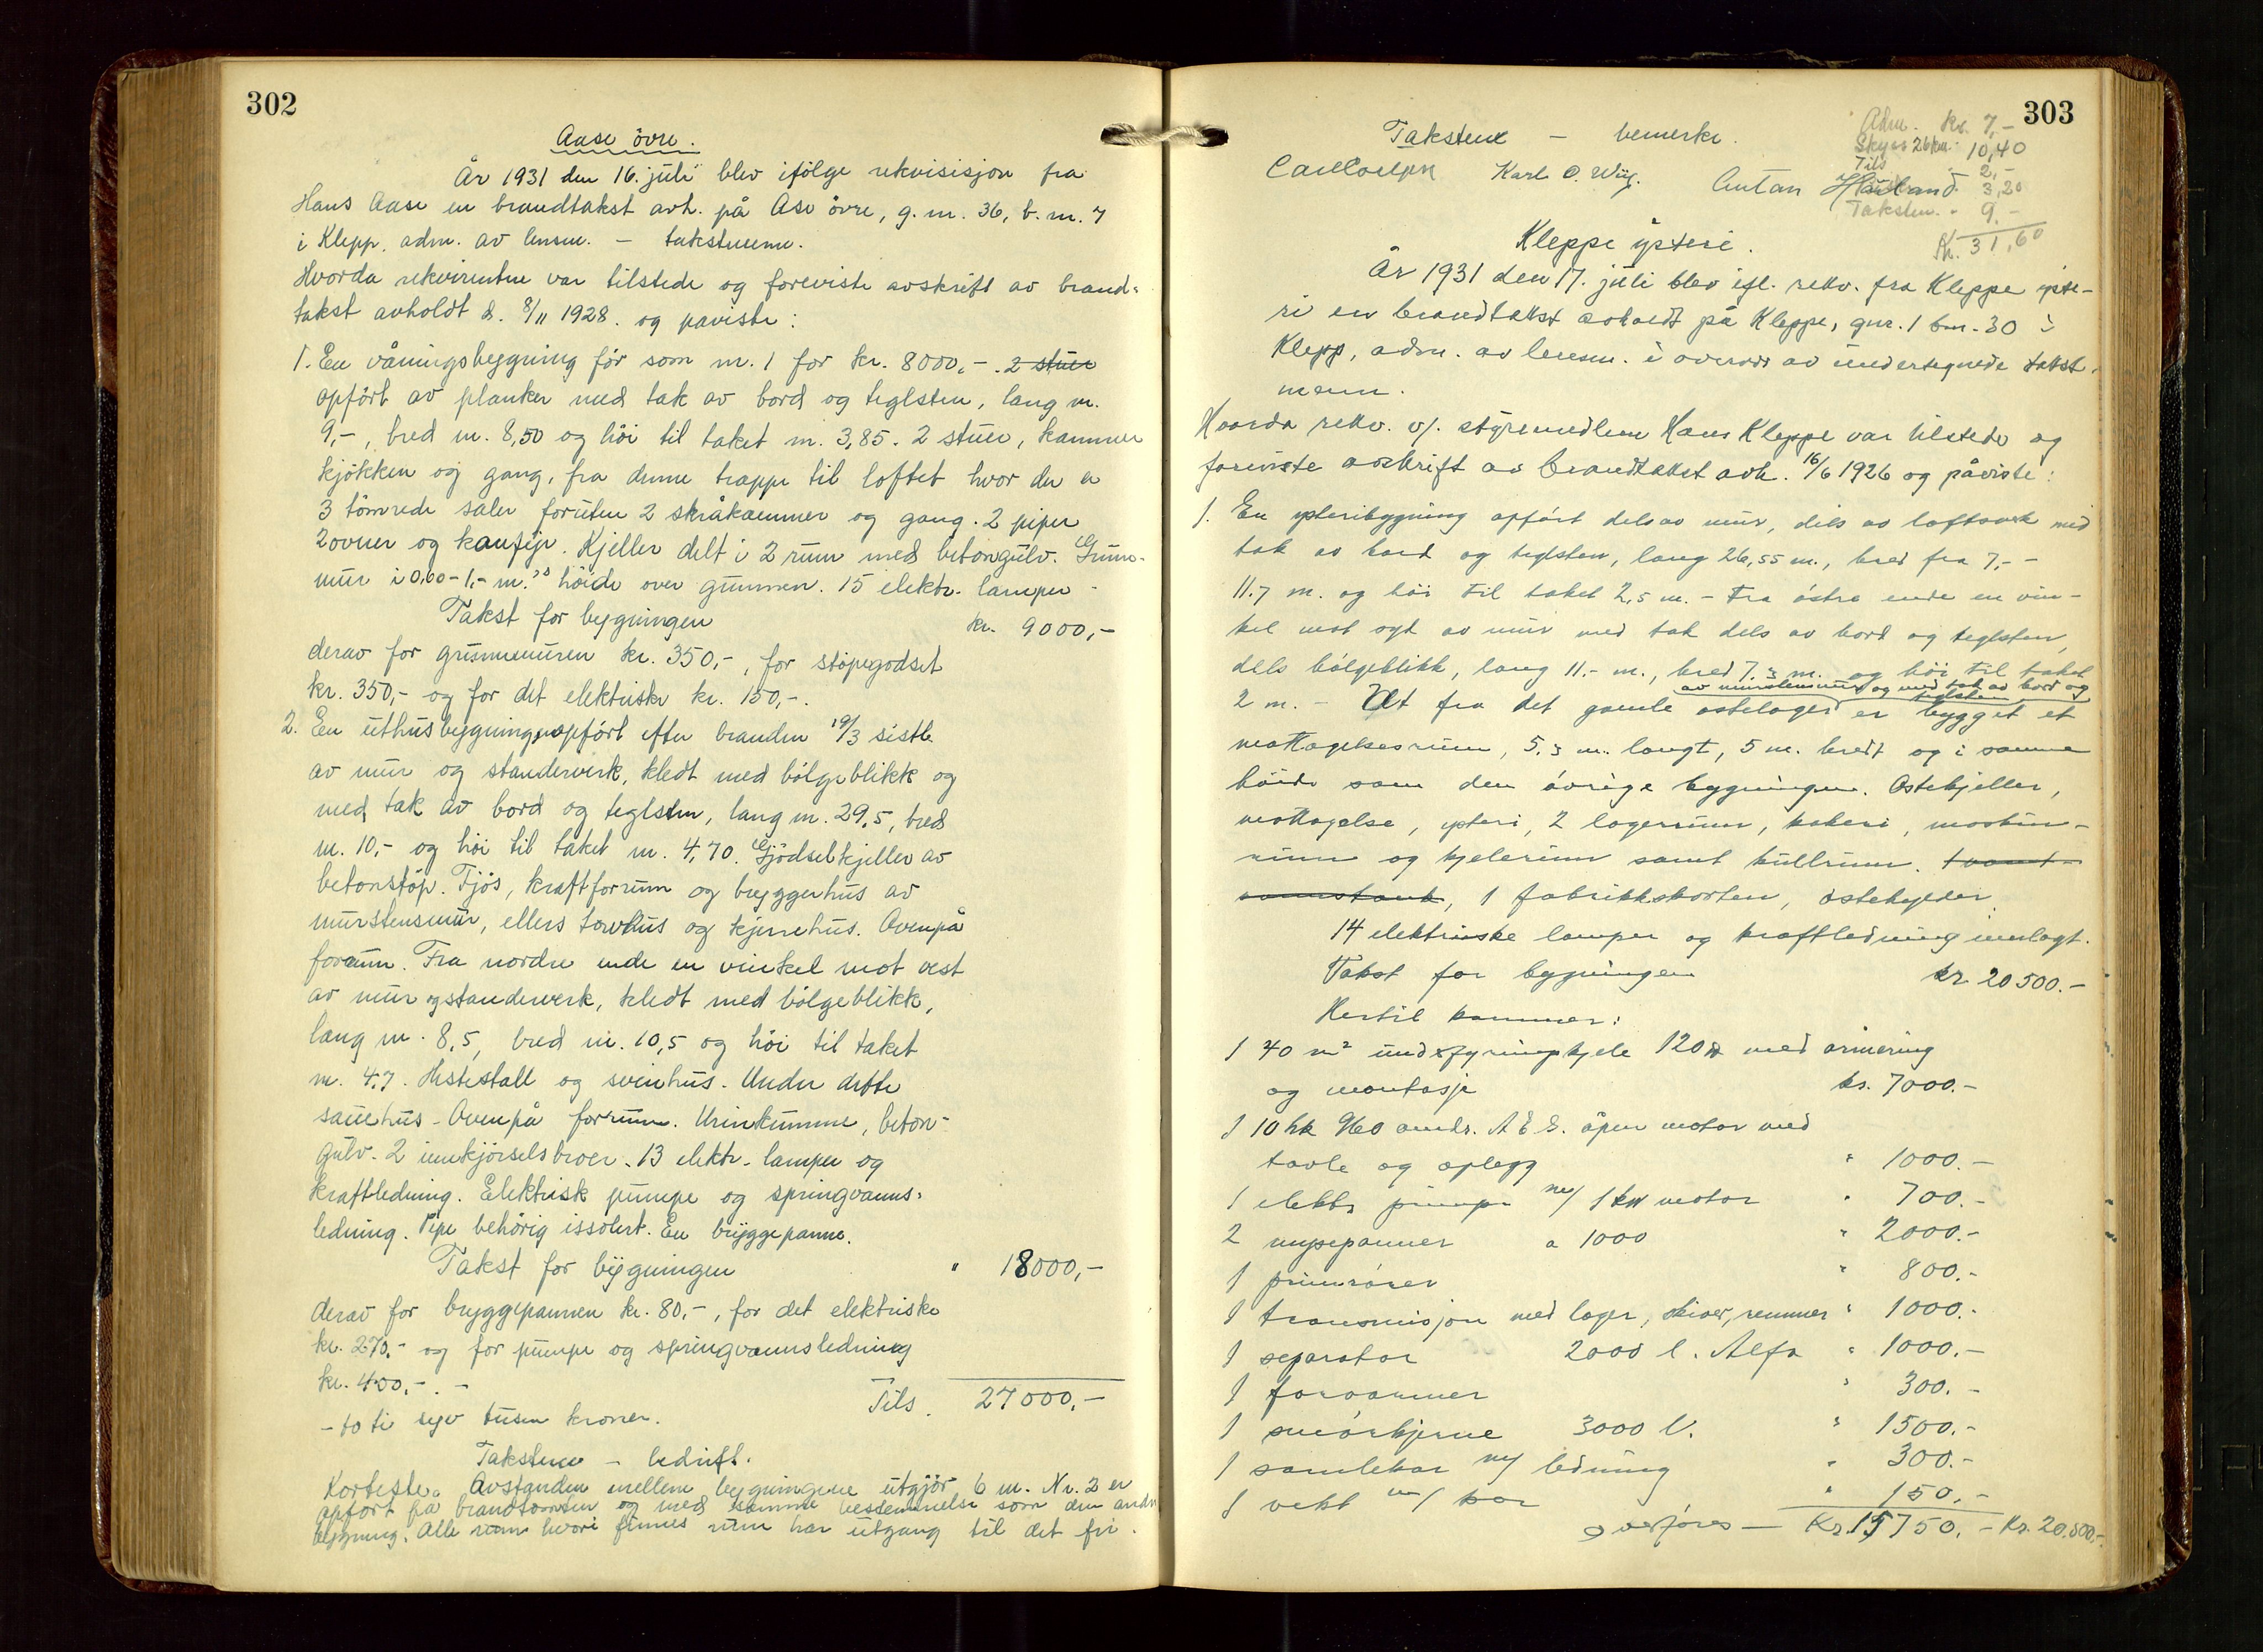 302
Aase övre.
År 1931 den 16. juli blev ifölge rekvisisjon fra
Hans Aase en brandtakst avh. på Ase övre, g. nr. 36, b. nr. 7
i Klepp, adm. av lensm. – takstmenn.
Hvorda rekvirenten var tilstede og foreviste avskrift av brand-
takst avholdt d. 8/11 1928. og paviste:
1. En våningsbygning för som nr. 1 for kr. 8000,-. 2 stuer
opfört av planker med tak av bord og teglsten, lang m.
9,-, bred m. 8,50 og höi til taket m. 3,85. 2 stuer, kammer
kjökken og gang, fra denne trappe til loftet hvor der er
3 tömrede saler foruten 2 skråkammer og gang. 2 piper
2 ovner og komfyr. Kjeller delt i 2 rum med betongulv. Grun-
mur i 0,60 - 1,- m.s höide over grunnen. 15 elektr. lamper -
Takst for bygningen kr. 9000,-
derav for grunnmuren kr. 350,-, for stöpegodset
kr. 350,- og for det elektriske kr. 150,-.
2. En uthusbygning opfört efter branden 19/3 sistl.
av mur og standerverk, kledt med bölgeblikk og
med tak av bord og teglsten, lang m. 29,5, bred
m. 10,- og höi til taket m. 4,70. Gjödselkjeller av
betonstöp. Fjös, kraftforrum og bryggerhus av
murstensmur, ellers torvhus og kjerrehus. Ovenpå
forrum. Fra nordre ende en vinkel mot vest
av mur og standerverk, kledt med bölgeblikk,
lang m. 8,5, bred m. 10,5 og höi til taket
m. 4,7. Hestestall og svinhus. Under dette
sauehus - Ovenpå forrum. Urinkumme, beton-
gulv. 2 innkjörselsbroer. 13 elektr. lamper og
kraftledning. Elektrisk pumpe og springvanns-
ledning. Pipe behörig issolert. En bryggepanne.
Takst for bygningen " 18000,-
derav for bryggepannen kr. 80,-, for det elektriske
kr. 270,- og for pumpe og springvannsledning
kr. 400,-. -
Tils. 27000,-
- to ti syv tusen kroner.
Takstene – bedrift.
Korteste. Avstanden mellem bygningene utgjör 6 m. Nr. 2 er
opfört på brandtomten og med samme bestemmelse som den andre
bygning. Alle rum hvori finnes rum har utgang til det fri.
303
Takstene – bemerke.
Adm. kr. 7,-
Skyss 26 km. - 10,40
Tils 2,-
3,20
Takstm. - 9,-
Kr. 31,60
Karl O. Wiig.
Antan Haaland
Kleppe ysteri.
År 1931 den 17. juli blev ifl. rekv. fra Kleppe yste-
ri en brandtakst avholdt på Kleppe, gnr. 1 bnr. 30 i
Klepp, adm. av lensm. i overvær av undertegnede takst-
menn.
Hvorda rekv. v/. styremedlem Hans Kleppe var tilstede og
foreviste avskrift av brandtakst avh. 16/6 1926 og påviste:
1. En ysteribygning opfört dels av mur, dels av loftsverk med
tak av bord og teglsten, lang 26,55 m., bred fra 7,- -
11.7 m. og höi til taket 2,5 m. - Fra östre ende en vin-
kel mot syd av mur med tak dels av bord og teglsten,
dels bölgeblikk, lang 11,- m., bred 7,3 m. og höi til taket
av murstensmur og med tak av bord og teglsten
2 m. - Ut fra det gamle ostelager er bygget et
mottagelsesrum, 5,3 m. langt, 5 m. bredt og i samme
höide som den övrige bygningen. Ostekjeller,
mottagelse, ysteri, 2 lagerrum, kokeri, maskin-
rum og kjelerum samt kullrum. 1 vant-
vannstank, 1 fabrikkskorsten, ostehylder
14 elektriske lamper og kraftledning innlagt.
Takst for bygningen kr 20500.-
Hertil kommer:
1 40 m² undefyringskjele 120 med armering
og montasje kr. 7000.-
1 10 hk 960 omdr. A E G. åpen motor med
tavle og oplegg " 1000.-
1 elektr pumpe m/ 1 kw motor " 700.-
2 mysepanner a 1000 " 2000.-
1 primrörer " 800.-
1 transmisjon med lager, skiver, remmer " 1000.-
1 separator 2000 l. Alfa " 1000.-
1 forvarmer " 300.-
1 smörkjerne 3000 l. " 1500.-
1 samlekar m/ ledning " 300.-
1 vekt m/ kar " 150.-
overföres — Kr. 15750.- Kr. 20.500,-